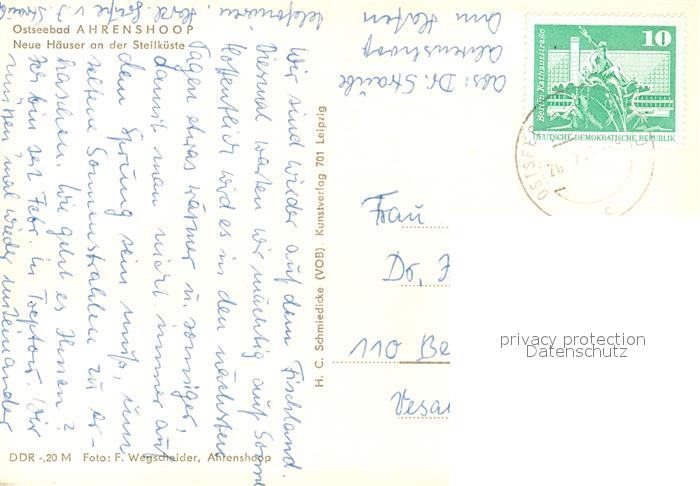 Ostseebad AHRENSHOOP
Neue Häuser an der Steilküste
Wir sind wieder auf dem Fischland.
Diesmal warten wir mächtig auf Sonne
Hoffentlich wird es in den nächsten
Tagen etwas wärmer u. sonniger,
damit man nicht immer auf
dem Sprung sein muß, um
seltene Sonnenstrahlen zu er-
haschen. Wie geht es Ihnen?
Ich bin seit Febr. in Treptow. Wir
müssen mal wieder miteinander
telefonieren. Herzl. Grüße v. J. Straube
Abs: Dr. Straube
Ahrenshoop
Am Hafen
H. C. Schmiedicke (VOB) Kunstverlag 701 Leipzig
Berlin-Rathausstraße
10
DEUTSCHE DEMOKRATISCHE REPUBLIK
OSTSEEB
Frau
Dr.
110 Be
privacy protection
Datenschutz
DDR -,20 M Foto: F. Wegscheider, Ahrenshoop